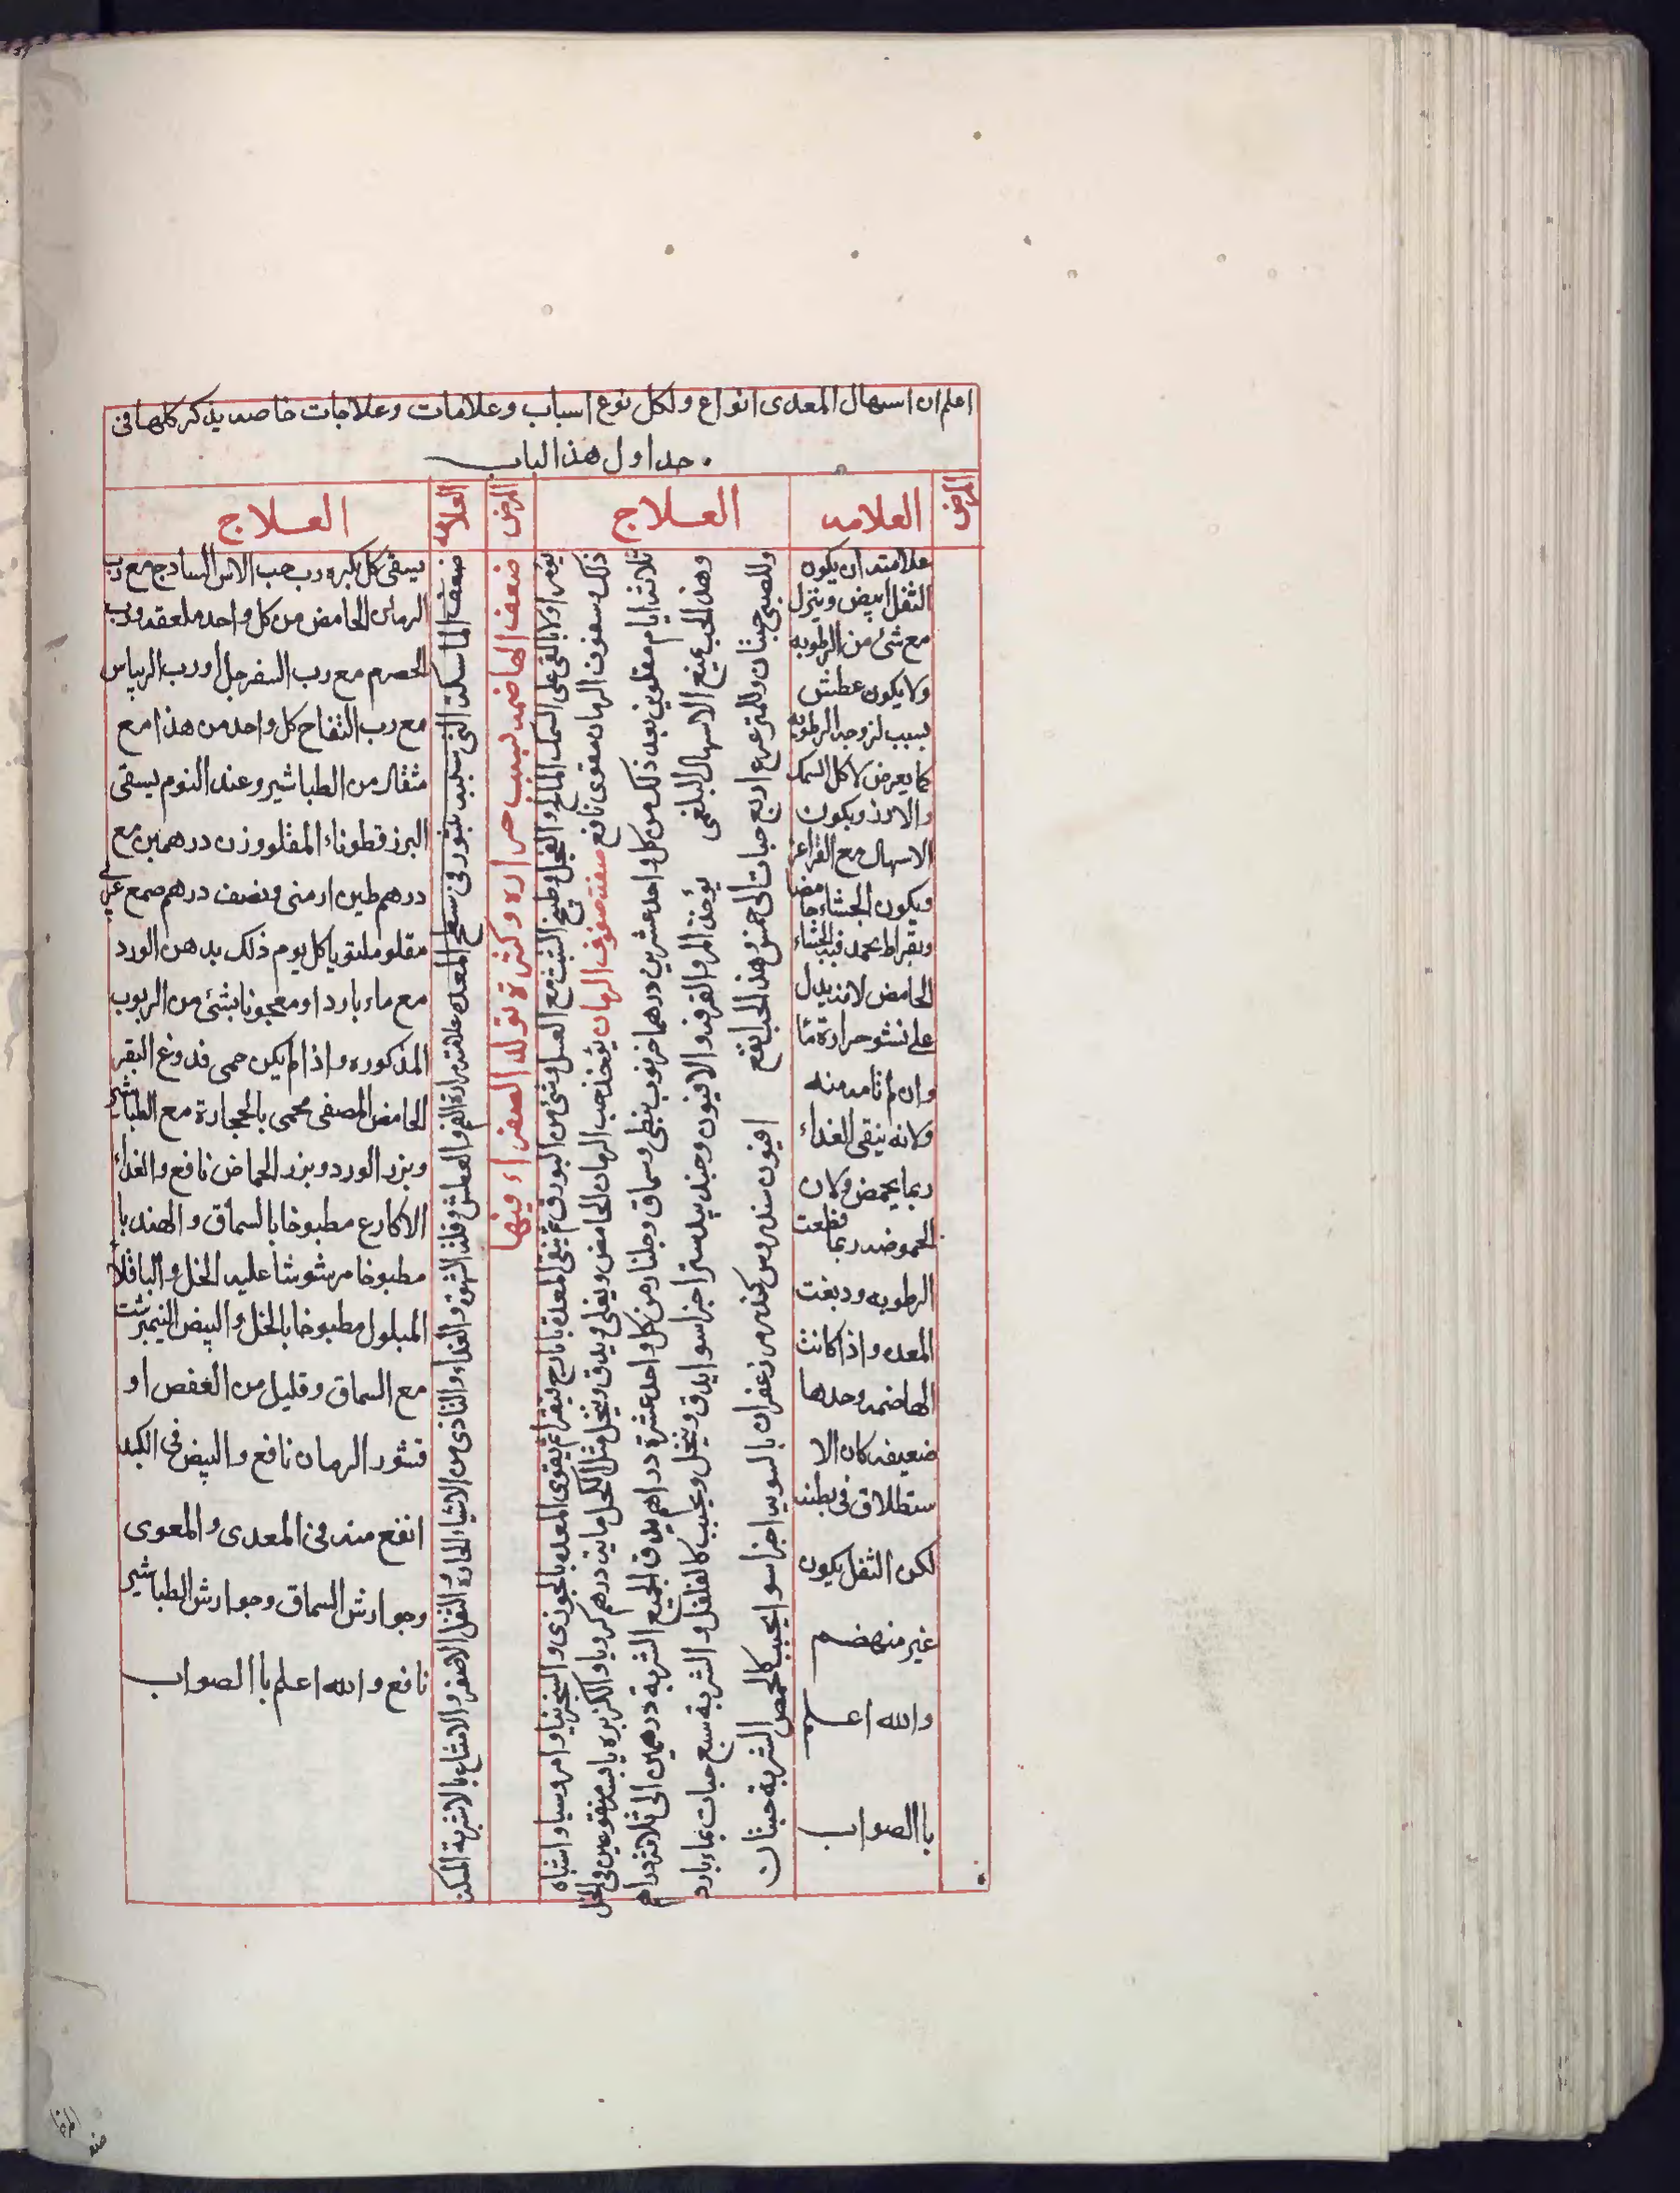 اعلم ان اسهال المعدى انواع ولكل نوع اسباب وعلامات وعلاجات خاصه يذكر كلها فى
جداول هذا الباب
المرض
العلامه
علامته ان يكون
الثفل ابيض وينزل
مع شئ من الرطوبه
ولا يكون عطش
بسبب لزوجه الرطوبه
كما يعرض لاكل السمك
والارز ويكون
الاسهال مع القراقر
ويكون الجشاء حامضا
وبقراط يحمد فيه الجشاء
الحامض لانه يدل
على نشو حرارة ما
وان لم تامه منه
ولانه يبقى الغذاء
ربما يحمض ولان
الحموضه ربما قطعت
الرطوبه ودبغت
المعده واذا كانت
الهاضمه وحدها
ضعيفه كان الا
ستطلاق فى بطنه
لكن الثفل يكون
غير منهضم
والله اعلم
باالصواب
العلاج
يؤمر اولا بالقى على السمك المالح والفجل وطبيخ الشبث مع العسل وشئ من البورق ثم ينقى المعدة بايارج فيقرا ثم يقوى المعده بالجوزى والسجزنيا وامروسيا واشباه
ذلك وسفوف الرمان مقوى نافع صفة سفوف الرمان يؤخذ حب الرمان الحامض ويغلى ويدق وينخل مثل الكحل مايه درهم كرويا والكزبره يابسه منقوعين فى الخل
ثلاثة ايام مقلوين بعد ذلك من كل واحد عشرين درهما خرنوب نبطى وسماق وجلنار من كل واحد عشرة دراهم يدق الجميع الشربة درهمين الى ثلاثة دراهم
وهذا الحب يمنع الاسهال البلغمى يؤخذ المر والقرفه والافيون وجندبيدستر اجزا سوا يدق وينخل ويحبب كالفلفل والشربة سبع حبات بماء بارد
وللصبى حبتان وللمترعرع اربع حبات الى خمس وهذا الحب انفع افيون سندروس كندر مر زعفران بالسويه اجزا سوا يحبب كالحمص الشربة حبتان
المرض
ضعف الهاضمه بسبب حراره وكثرة تولد الصفراء فيها
العلامه
ضعف الماسكة التى بسبب بثور فى سطح المعده علامته مرارة الفم والعطش وقلة الشهوة والغذاء والتاذى من الاشياء الحاره والثفل الاصفر والانتفاع بالاشربة المسكنه
العلاج
يسقى كل بكره رب حب الاس الساذج مع رب
الرمان الحامض من كل واحد ملعقه ورب
الحصرم مع رب السفرجل او رب الريباس
مع رب التفاح كل واحد من هذا مع
مثقال من الطباشير وعند النوم يسقى
البزر قطوناء المقلو وزن درهمين مع
درهم طين ارمنى ونصف درهم صمع عربى
مقلو ملتويا كل يوم ذلك بدهن الورد
مع ماء بارد او معجونا بشئ من الربوب
المذكوره واذا لم يكن حمى فدوغ البقر
الحامض المصفى محمى بالحجارة مع الطباشير
وبزر الورد وبزر الحماض نافع والغذاء
الاكارع مطبوخا بالسماق والهندبا
مطبوخا مرشوشا عليه الخل والباقلا
المبلول مطبوخا بالخل والبيض النيمبرشت
مع السماق وقليل من العفص او
قشور الرمان نافع والبيض فى الكبد
انفع منه فى المعدى والمعوى
وجوارش السماق وجوارش الطباشير
نافع والله اعلم باالصواب